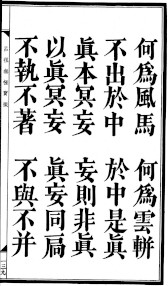 何為風馬　何為雲輧
不出於中　於中是眞
眞本冥妄　妄則非眞
以眞冥妄　眞妄同局
不執不著　不與不并